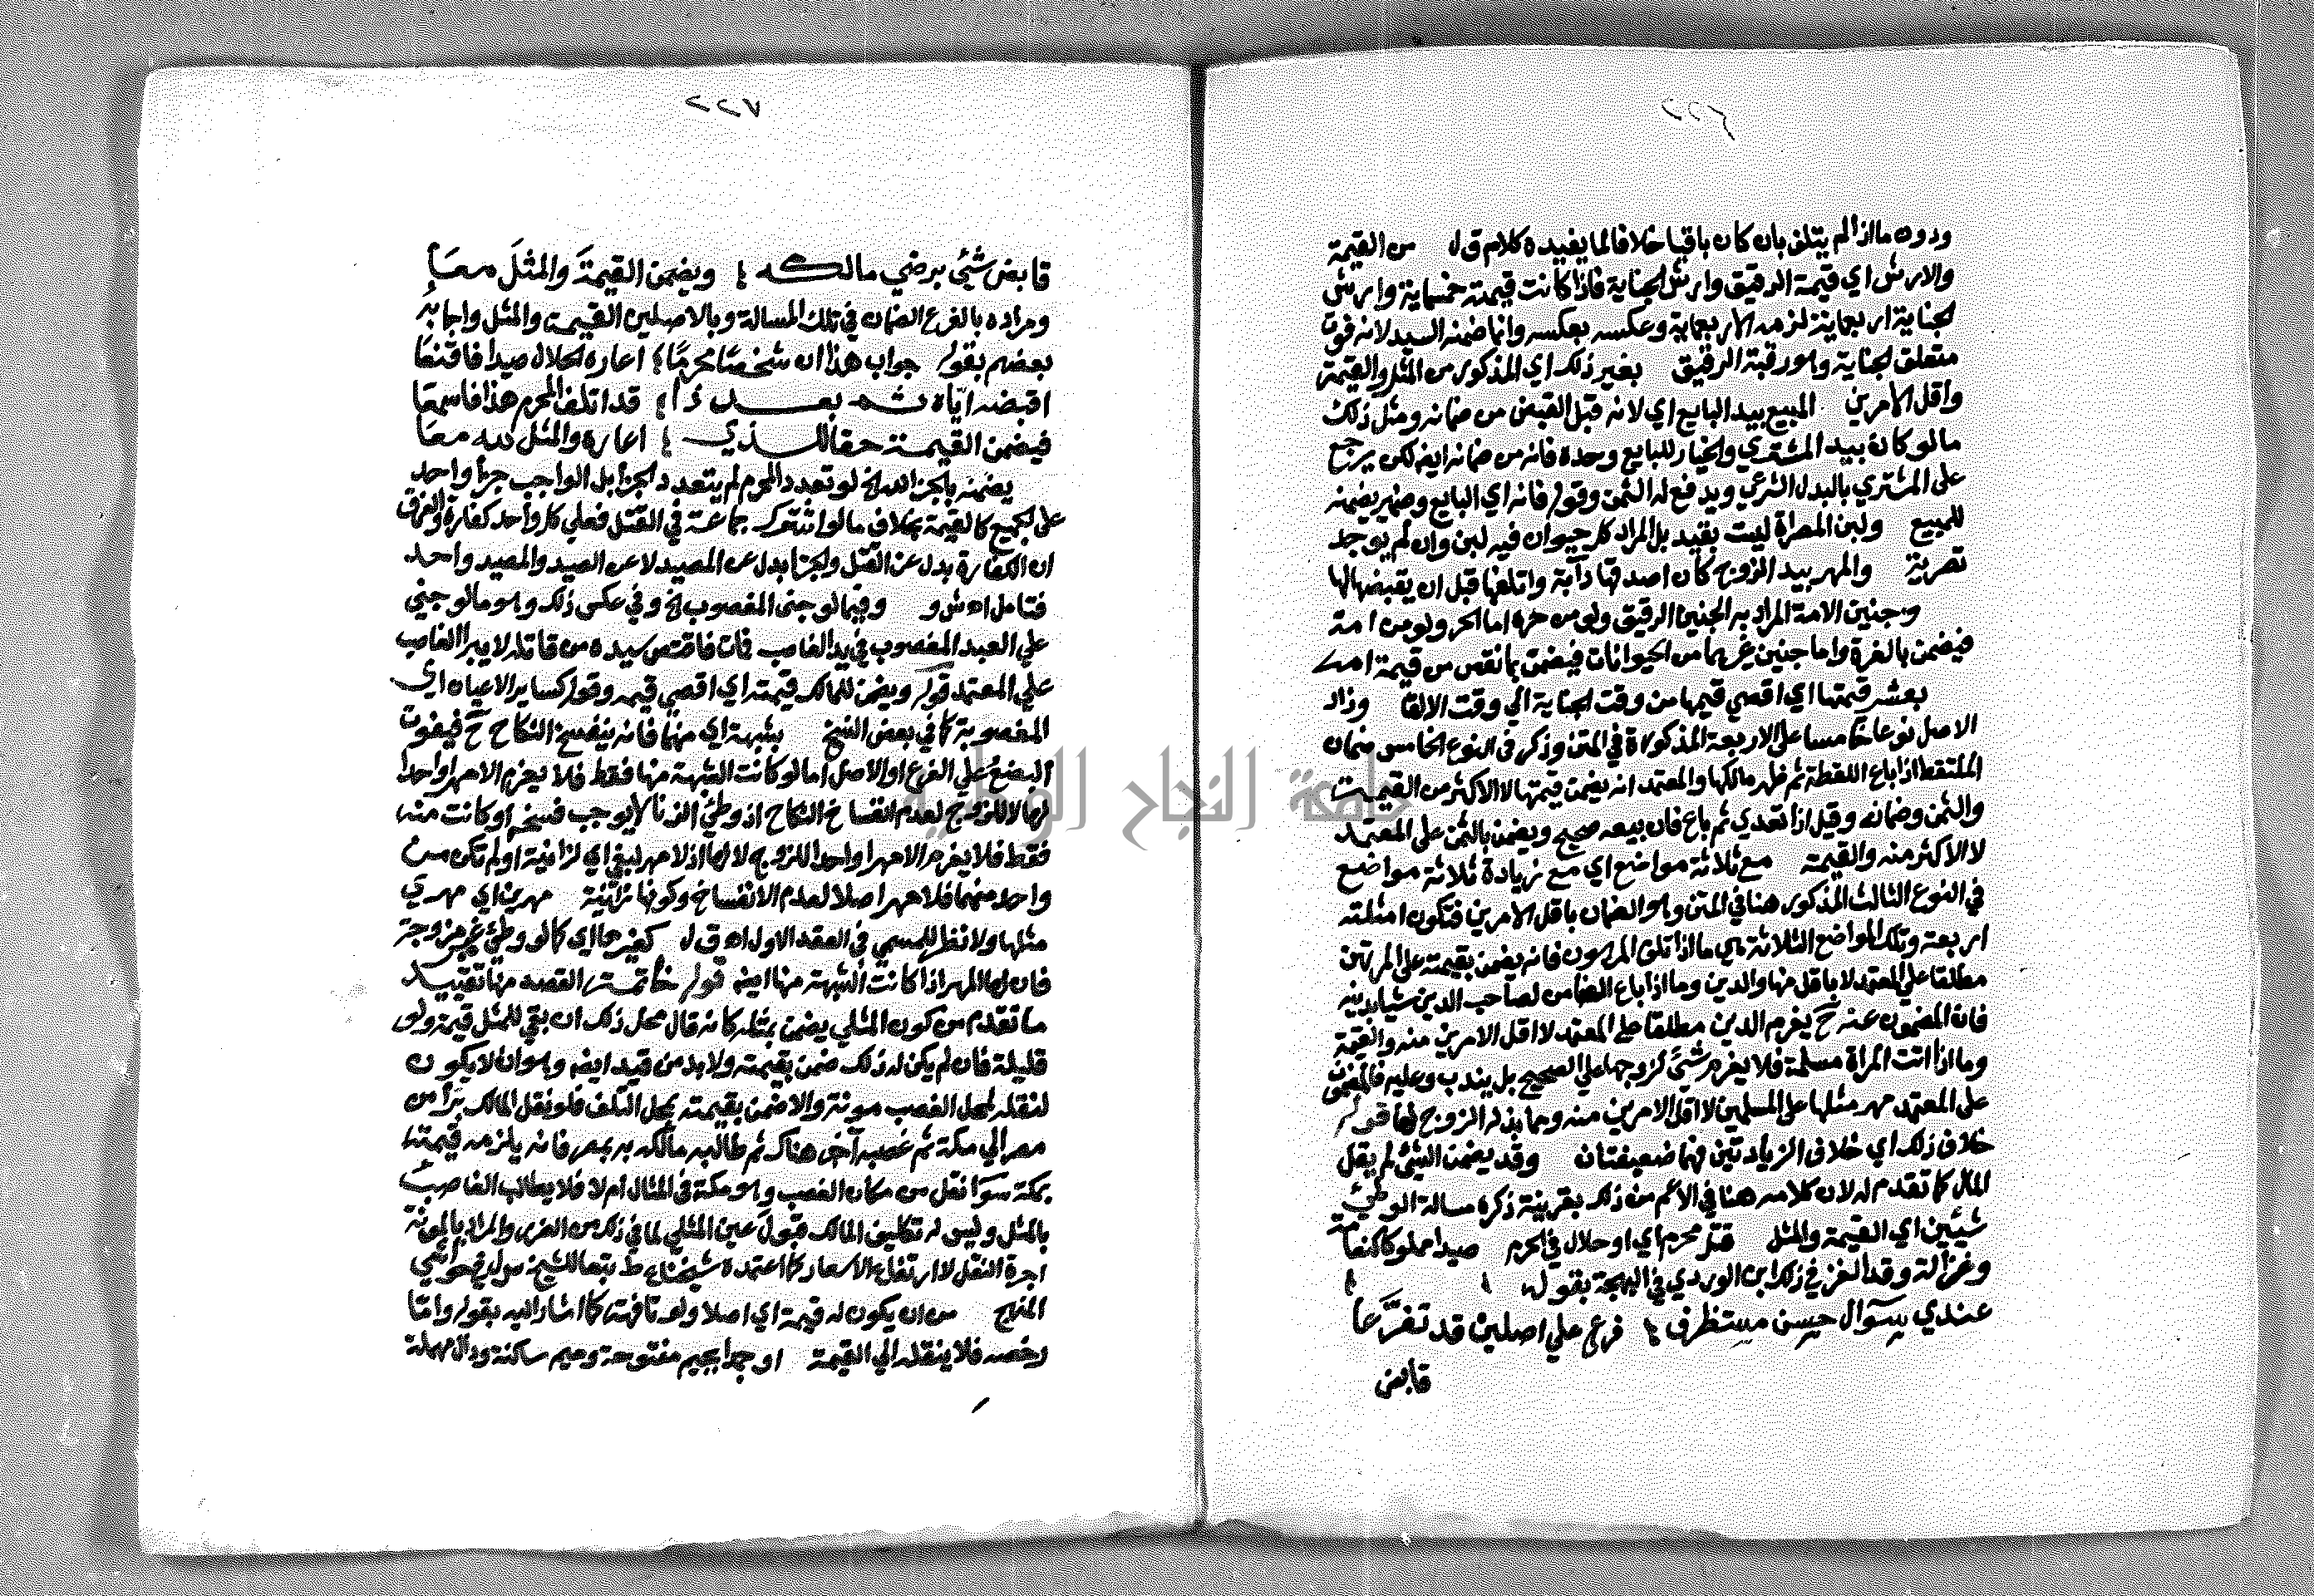 ٦٢٢
ودون ما اذا لم يتلف بان كان باقيا خلافا لما يفيده كلام ق ل من القيمة
والارش اي قيمة الرقيق وارش الجناية فاذا كانت قيمته خمسماية وارش
الجناية اربعماية لزمه الاربعماية وعكسه بعكسه وانما ضمنه السيد لانه فوت
متعلق الجناية وهو رقبة الرقيق بغير ذلك اي المذكور من المثل والقيمة
واقل الامرين المبيع بيد البايع اي لانه قبل القبض من ضمانه ومثل ذلك
ما لو كان بيد المشتري والخيار للبايع وحده فانه من ضمانه ايضا لكن يرجع
على المشتري بالبدل الشرعي ويدفع له الثمن وقوله فانه اي البايع وضمير يضمنه
للمبيع ولبن المصراة ليست بقيد بل المراد كل حيوان فيه لبن وان لم يوجد
تصرية والمهر بيد الزوج كان اصدقها دابة واتلفها قبل ان يقبضها لها
وجنين الامة المراد به الجنين الرقيق ولو من حرة اما الحر ولو من امة
فيضمن بالغرة واما جنين غيرهما من الحيوانات فيضمن بما نقص من قيمة امه
بعشر قيمتها اي اقصي قيمها من وقت الجناية الي وقت الالقا وزاد
الاصل نوعا خامسا على الاربعة المذكورة في المتن وذكر في النوع الخامس ضمان
الملتقط اذا باع اللقطة ثم ظهر مالكها والمعتمد انه يضمن قيمتها لا الاكثر من القيمة
والثمن وضمانه وقيل اذا تعدي ثم باع فان بيعه صحيح ويضمن بالثمن على المعتمد
لا الاكثر منه والقيمة مع ثلاثة مواضع اي مع زيادة ثلاثة مواضع
في النوع الثالث المذكور هنا في المتن وهو الضمان باقل الامرين فتكون امثلته
اربعة وتلك المواضع الثلاثة هي ما اذا تلف المرهون فانه يضمن بقيمته على المرتهن
مطلقا علي المعتمد لا باقل منها والدين وما اذا باع الضامن لصاحب الدين شيا بدينه
فان المضمون عنه ح يغرم الدين مطلقا على المعتمد لا اقل الامرين منه والقيمة
وما اذا اتت المراة مسلمة فلا يغرم شئ لزوجها علي الصحيح بل يندب وعليه فالمضمون
على المعتمد مهر مثلها على المسلمين لا اقل الامرين منه وما بذله الزوج لها قوله
خلاف ذلك اي خلاف الزيادتين فهما ضعيفتان وقد يضمن الشئ لم يقل
المال كما تقدم له لان كلامه هنا في الاعم من ذلك بقرينة ذكره مسالة الوطئ
شيئين اي القيمة والمثل قتل محرم اي او حلال في الحرم صيدا مملوكا كنعامة
وغزالة وقد الغز في ذلك ابن الوردي في البهجة بقوله
عندي سؤال حسن مستظرف فرع علي اصلين قد تفرعا
قابض
٦٢٧
قابض شئ برضي مالكه ويضمن القيمة والمثل معا
ومراده بالفرع الضمان في تلك المسالة وبالاصلين القيمة والمثل واجابه
بعضهم بقوله جواب هذا ان شخصا محرما اعاره الحلال صيدا فاقنعا
اقبضه اياه ثم بعد ذا قد اتلف المحرم هذا فاسمعا
فيضمن القيمة حقا للذي اعاره والمثل لله معا
يضمنه بالجزا الخ لو تعدد المحرم لم يتعدد الجزا بل الواجب جزأ واحد
على الجميع كالقيمة بخلاف ما لو اشترك جماعة في القتل فعلي كل واحد كفارة والفرق
ان الكفارة بدل عن القتل والجزا بدل عن المصيد لا عن الصيد والمصيد واحد
فتامل اه ش و وفيما لو جنى المغصوب الخ وفي عكس ذلك وهو ما لو جني
علي العبد المغصوب في يد الغاصب فمات فاقتص سيده من قاتله لا يبرا الغاصب
علي المعتمد قوله ويضمن للمالك قيمته اي اقصي قيمه وقوله كساير الاعيان اي
المغصوبة كما في بعض النسخ بشبهة اي منهما فانه ينفسخ النكاح ح فيفوت
البضع علي الفرع او الاصل اما لو كانت الشبهة منها فقط فلا يغرم الا مهرا واحدا
لها لا للزوج لعدم انفساخ النكاح اذ وطئ الزنا لا يوجب فسخه او كانت منه
فقط فلا يغرم الا مهرا واحدا للزوج لا لها اذ لا مهر لبغي اي لزانية او لم تكن من
واحد منهما فلا مهر اصلا لعدم الانفساخ وكونها زانية مهرين اي مهري
مثلها ولا نظر للمسمي في العقد الاول اه ق ل كغيرها اي كما لو وطئ غير مزوجة
فان لها المهر اذا كانت الشبهة منها ايضا قوله خاتمة القصد منها تقييد
ما تقدم من كون المثلي يضمن بمثله كانه قال محل ذلك ان بقي للمثل قيمة ولو
قليلة فان لم يكن له ذلك ضمن بقيمته ولا بد من قيد ايضا وهو ان لا يكون
لنقله لمحل الغصب مونة والا ضمن بقيمته بمحل التلف فلو نقل المالك برا من
مصر الي مكة ثم غصبه آخر هناك ثم طالبه مالكه به بمصر فانه يلزمه قيمته
بمكة سوا نقل من مكان الغصب وهو مكة في المثال ام لا فلا يطالب الغاصب
بالمثل وليس له تكليف المالك قبول عين المثلي لما في ذلك من الضرر والمراد بالمونة
اجرة النقل لا ارتفاع الاسعار كما اعتمده شيخنا ع ط تبعا للشيخ س ل في حواشي
المنهج من ان يكون له قيمة اي اصلا ولو تافهة كما اشار اليه بقوله واما
رخصه فلا ينقله الي القيمة او جمدا بجيم مفتوحة وميم ساكنة ودال مهملة
جامعة النجاح الوطنية